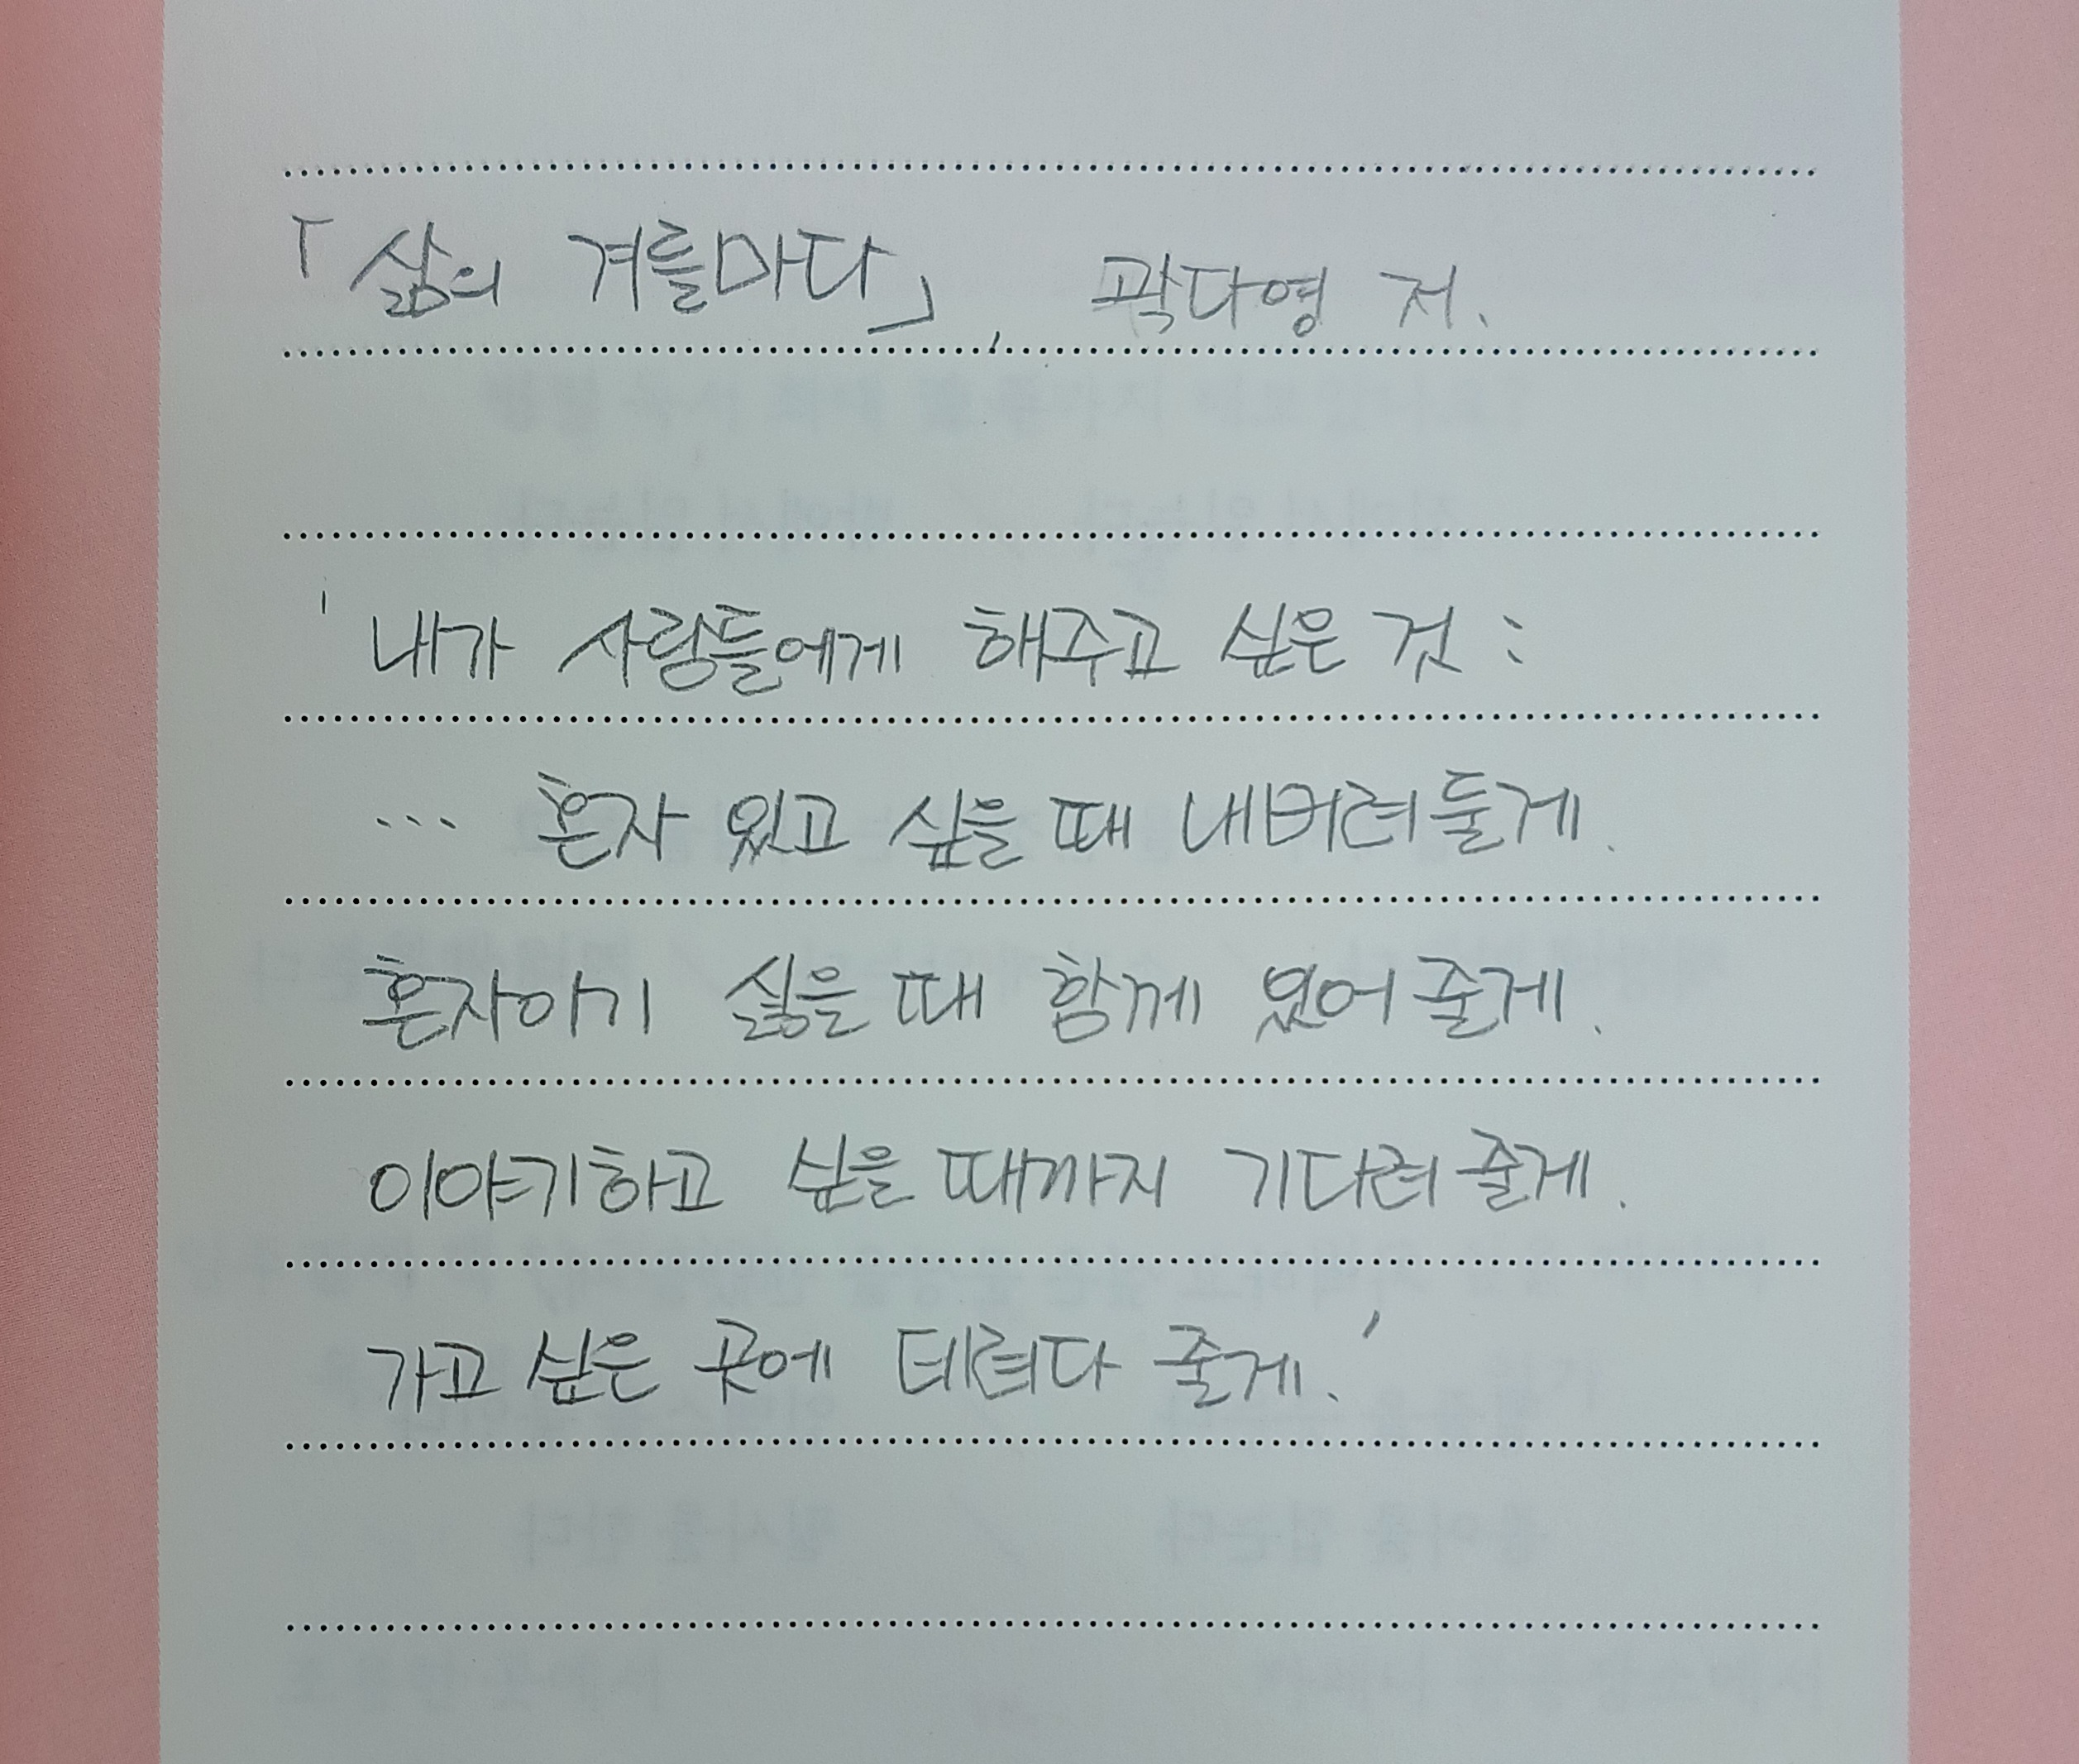 「삶의 겨를마다」, 곽다영 저.
'내가 사람들에게 해주고 싶은 것:
... 혼자 있고 싶을 때 내버려 둘게.
혼자이기 싫을 때 함께 있어 줄게.
이야기하고 싶을 때까지 기다려 줄게.
가고 싶은 곳에 데려다 줄게.'